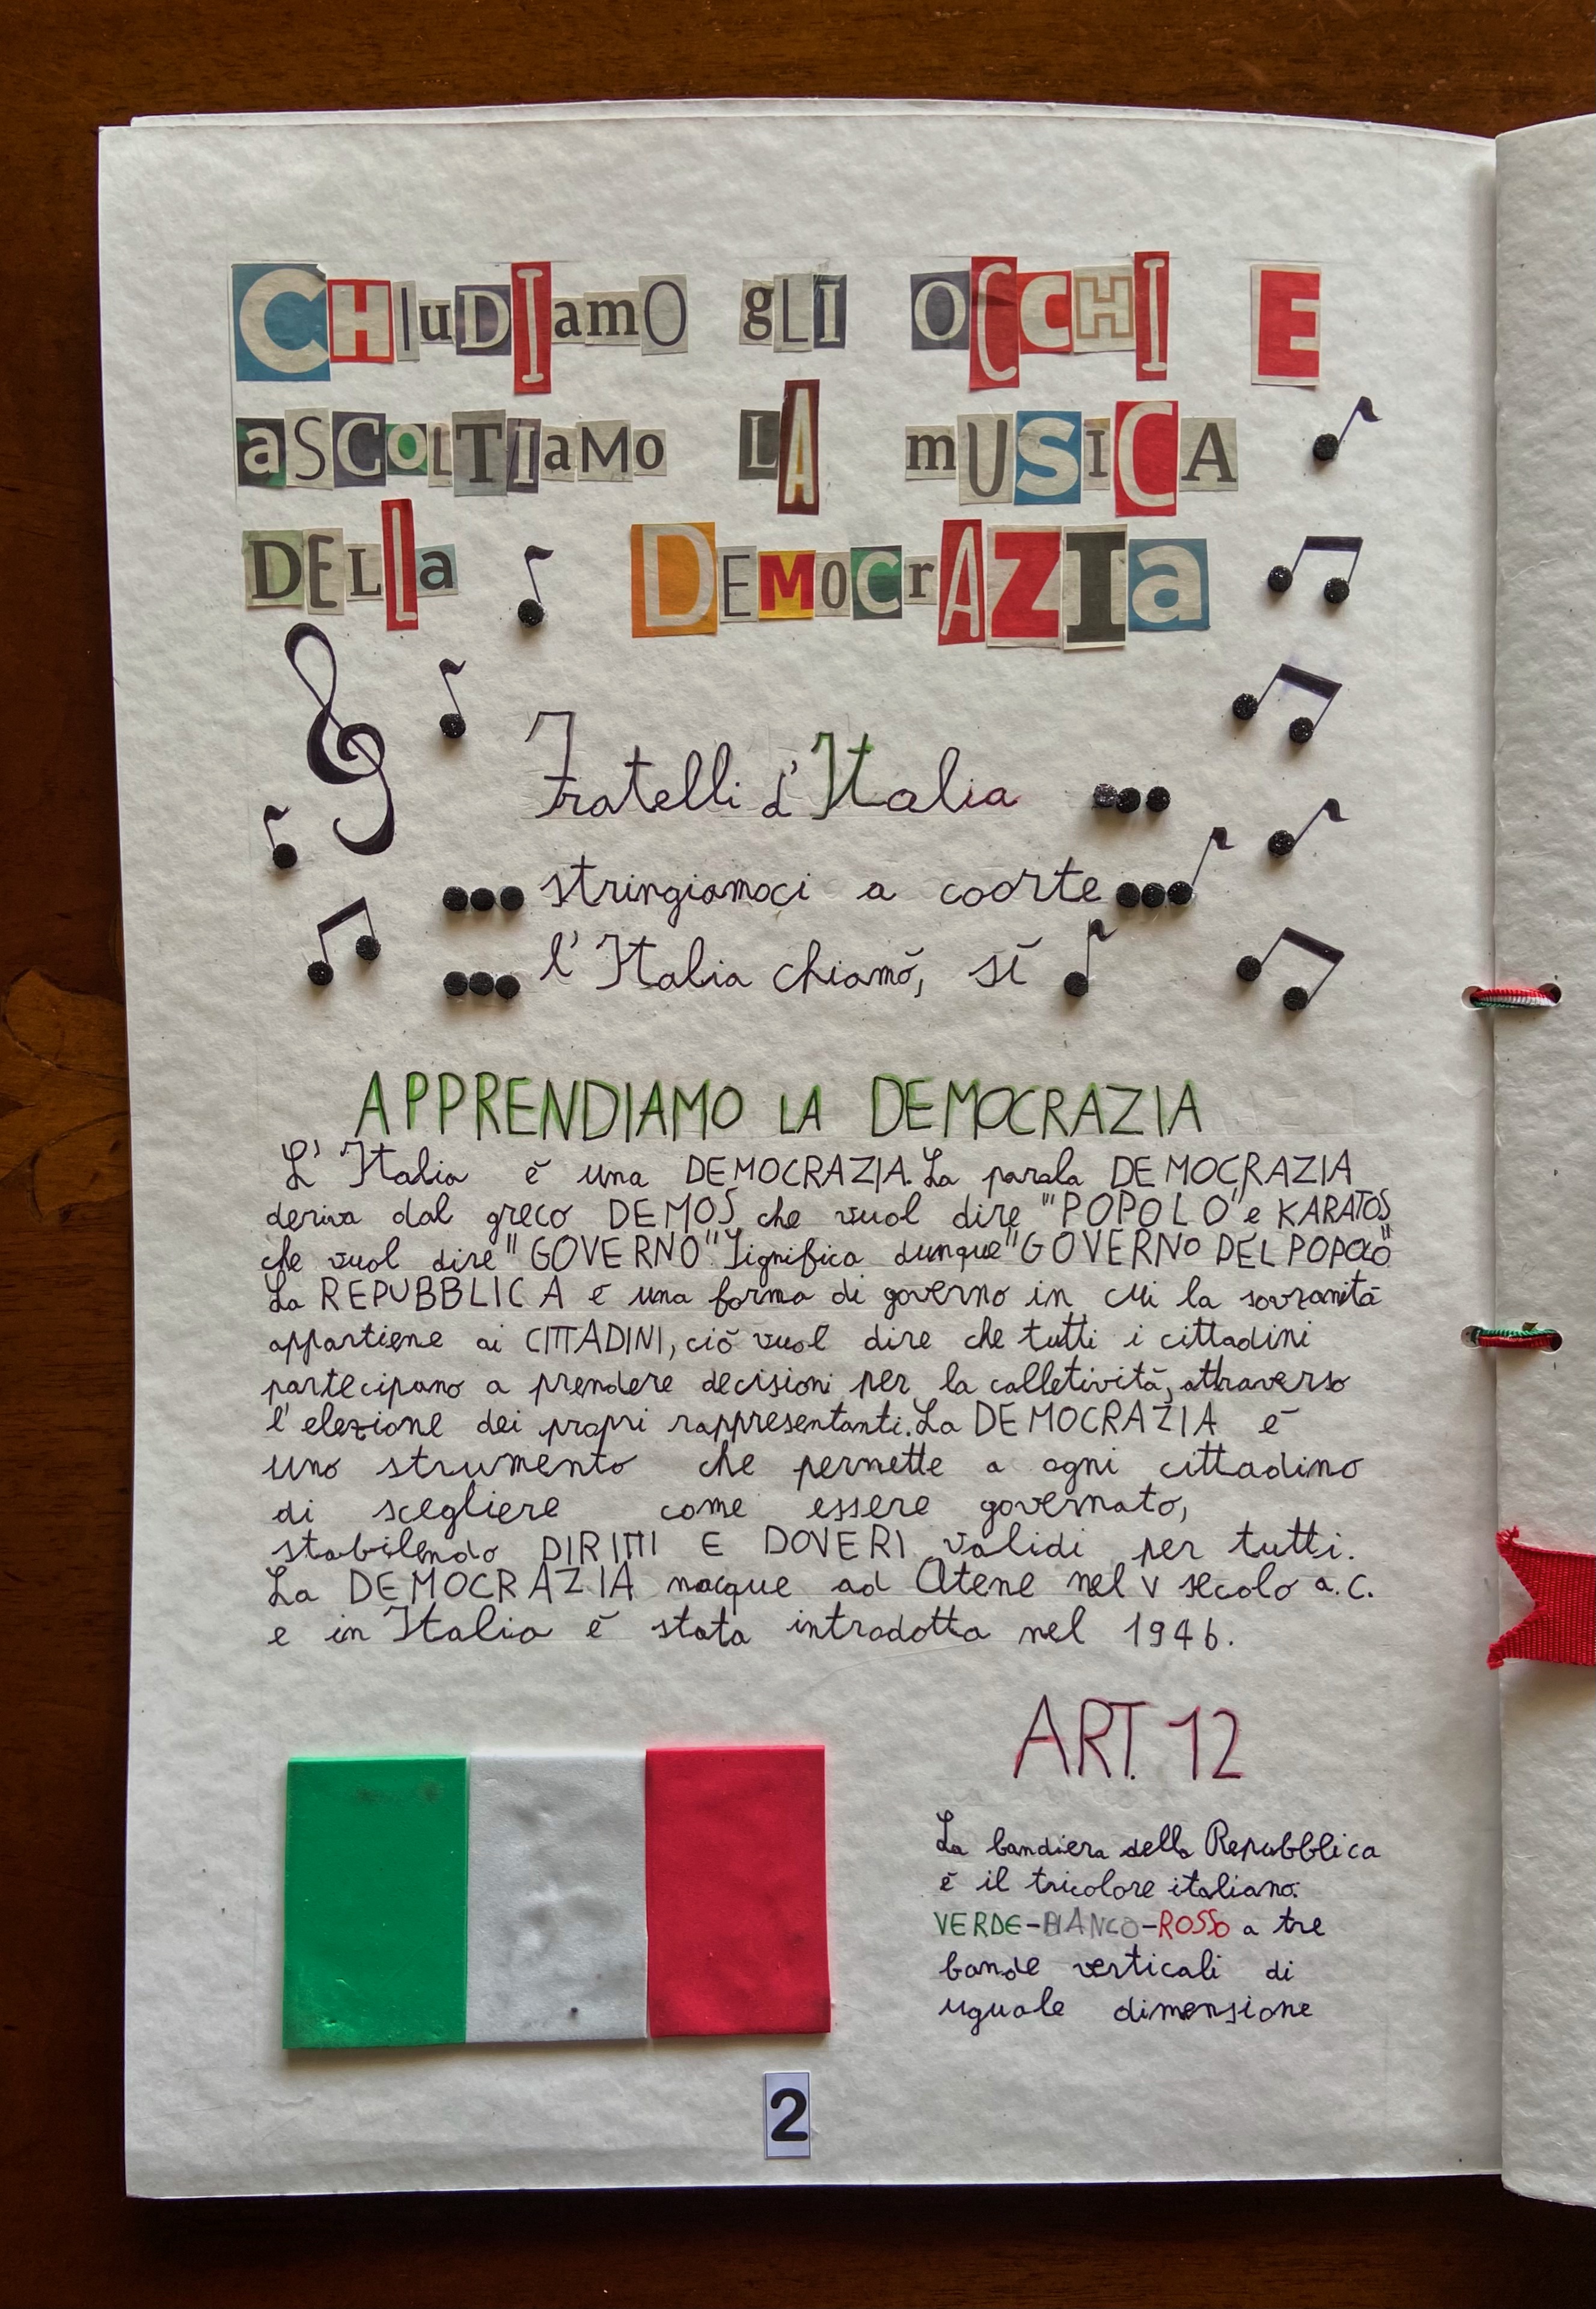 CHIuDIamO gLI OCCHI E
aSCOLTIaMo LA mUSICA
DELLa DEMOCrAZIa
Fratelli d'Italia ...
... stringiamoci a coorte ...
... l'Italia chiamò, sì
APPRENDIAMO LA DEMOCRAZIA
L'Italia è una DEMOCRAZIA. La parola DEMOCRAZIA
deriva dal greco DEMOS che vuol dire "POPOLO" e KARATOS
che vuol dire "GOVERNO". Significa dunque "GOVERNO DEL POPOLO"
La REPUBBLICA è una forma di governo in cui la sovranità
appartiene ai CITTADINI, ciò vuol dire che tutti i cittadini
partecipano a prendere decisioni per la colletività, attraverso
l'elezione dei propri rappresentanti. La DEMOCRAZIA è
uno strumento che permette a ogni cittadino
di scegliere come essere governato,
stabilendo DIRITTI E DOVERI validi per tutti.
La DEMOCRAZIA nacque ad Atene nel V secolo a.C.
e in Italia è stata introdotta nel 1946.
ART. 12
La bandiera della Repubblica
è il tricolore italiano:
VERDE-BIANCO-ROSSO a tre
bande verticali di
uguale dimensione
2